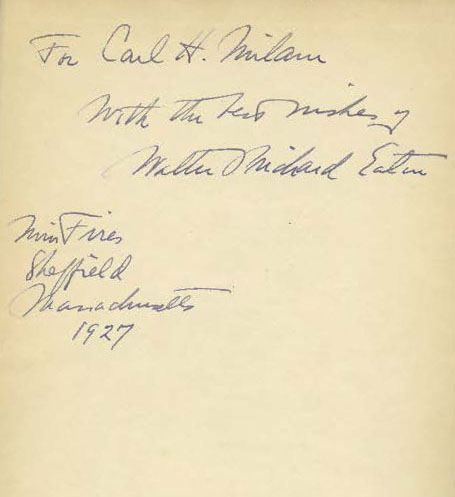 For Carl H. Milam
With the best wishes of
Walter Prichard Eaton
Twin Fires
Sheffield
Massachusetts
1927